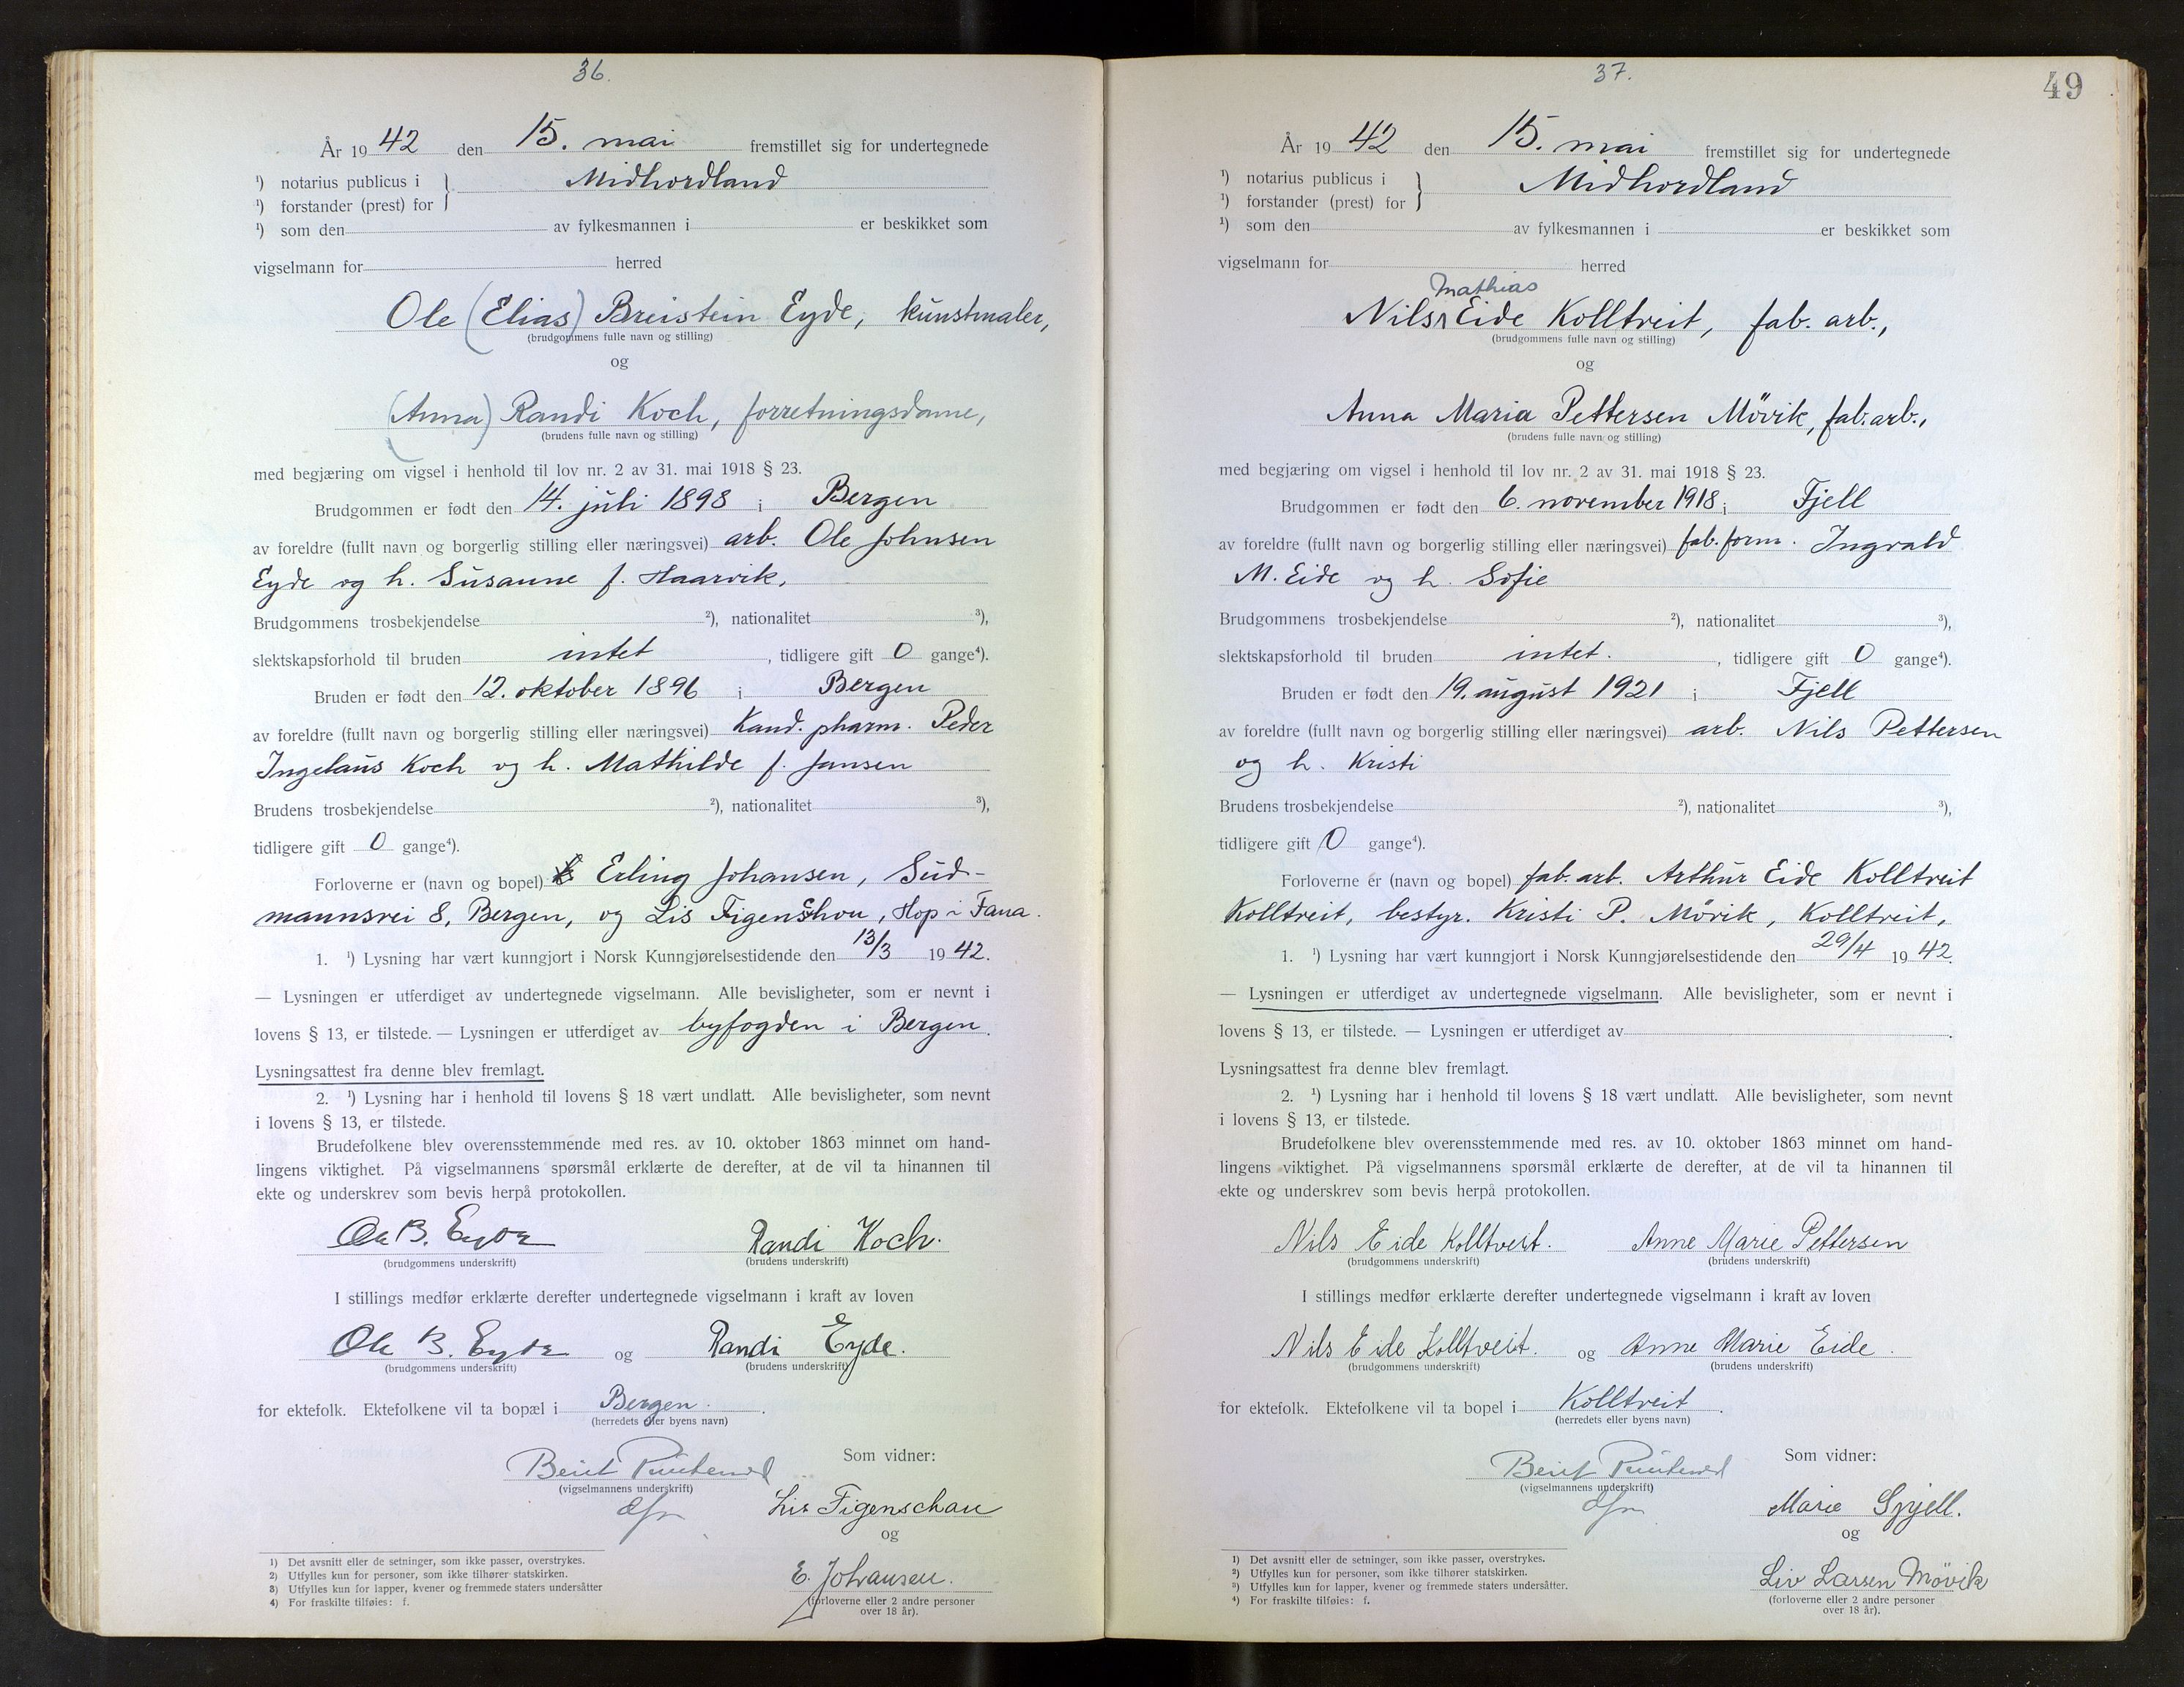 36.
År 1942 den 15. mai fremstillet sig for undertegnede
¹) notarius publicus i } Midhordland
¹) forstander (prest) for
¹) som den av fylkesmannen i er beskikket som
vigselmann for herred
Ole (Elias) Breistein Eyde, kunstmaler,
(brudgommens fulle navn og stilling)
og
(Anna) Randi Koch, forretningsdame,
(brudens fulle navn og stilling)
med begjæring om vigsel i henhold til lov nr. 2 av 31. mai 1918 § 23.
Brudgommen er født den 14. juli 1898 i Bergen
av foreldre (fullt navn og borgerlig stilling eller næringsvei) arb. Ole Johnsen
Eyde og h. Susanne f. Haarvik,
Brudgommens trosbekjendelse ²), nationalitet ³),
slektskapsforhold til bruden intet, tidligere gift 0 gange⁴).
Bruden er født den 12. oktober 1896 i Bergen
av foreldre (fullt navn og borgerlig stilling eller næringsvei) Kand. pharm. Peder
Ingelaus Koch og h. Mathilde f. Jansen
Brudens trosbekjendelse ²), nationalitet ³),
tidligere gift 0 gange⁴).
Forloverne er (navn og bopel) Erling Johansen, Sud-
mannsvei 8, Bergen, og Lis Figenshou, Hop i Fana.
1. ¹) Lysning har vært kunngjort i Norsk Kunngjørelsestidende den 13/3 1942.
— Lysningen er utferdiget av undertegnede vigselmann. Alle bevisligheter, som er nevnt i
lovens § 13, er tilstede. — Lysningen er utferdiget av byfogden i Bergen.
Lysningsattest fra denne blev fremlagt.
2. ¹) Lysning har i henhold til lovens § 18 vært undlatt. Alle bevisligheter, som nevnt
i lovens § 13, er tilstede.
Brudefolkene blev overensstemmende med res. av 10. oktober 1863 minnet om hand-
lingens viktighet. På vigselmannens spørsmål erklærte de derefter, at de vil ta hinannen til
ekte og underskrev som bevis herpå protokollen.
Ole B. Eyde Randi Koch.
(brudgommens underskrift) (brudens underskrift)
I stillings medfør erklærte derefter undertegnede vigselmann i kraft av loven
Ole B. Eyde og Randi Eyde.
(brudgommens underskrift) (brudens underskrift)
for ektefolk. Ektefolkene vil ta bopæl i Bergen.
(herredets eller byens navn)
Som vidner:
Berit
(vigselmannens underskrift)
Lis Figenschau
og
E. Johansen.
(forloverne eller 2 andre personer
over 18 år).
1) Det avsnitt eller de setninger, som ikke passer, overstrykes.
2) Utfylles kun for personer, som ikke tilhører statskirken.
3) Utfylles kun for lapper, kvener og fremmede staters undersåtter
4) For fraskilte tilføies: f.
37.
49
År 1942 den 15. mai fremstillet sig for undertegnede
¹) notarius publicus i } Midhordland
¹) forstander (prest) for
¹) som den av fylkesmannen i er beskikket som
vigselmann for herred
Mathias
Nils Eide Kolltveit, fab. arb.,
(brudgommens fulle navn og stilling)
og
Anna Maria Pettersen Mövik, fab. arb.,
(brudens fulle navn og stilling)
med begjæring om vigsel i henhold til lov nr. 2 av 31. mai 1918 § 23.
Brudgommen er født den 6. november 1918 i Fjell
av foreldre (fullt navn og borgerlig stilling eller næringsvei) fab. form. Ingvald
M. Eide og h. Sofie
Brudgommens trosbekjendelse ²), nationalitet ³),
slektskapsforhold til bruden intet., tidligere gift 0 gange⁴).
Bruden er født den 19. august 1921 i Fjell
av foreldre (fullt navn og borgerlig stilling eller næringsvei) arb. Nils Pettersen
og h. Kristi
Brudens trosbekjendelse ²), nationalitet ³),
tidligere gift 0 gange⁴).
Forloverne er (navn og bopel) fab. arb. Arthur Eide Kolltveit
Kolltveit, bestyr. Kristi P. Mövik, Kolltveit,
1. ¹) Lysning har vært kunngjort i Norsk Kunngjørelsestidende den 29/4 1942.
— Lysningen er utferdiget av undertegnede vigselmann. Alle bevisligheter, som er nevnt i
lovens § 13, er tilstede. — Lysningen er utferdiget av .
Lysningsattest fra denne blev fremlagt.
2. ¹) Lysning har i henhold til lovens § 18 vært undlatt. Alle bevisligheter, som nevnt
i lovens § 13, er tilstede.
Brudefolkene blev overensstemmende med res. av 10. oktober 1863 minnet om hand-
lingens viktighet. På vigselmannens spørsmål erklærte de derefter, at de vil ta hinannen til
ekte og underskrev som bevis herpå protokollen.
Nils Eide Kolltveit. Anne Marie Pettersen
(brudgommens underskrift) (brudens underskrift)
I stillings medfør erklærte derefter undertegnede vigselmann i kraft av loven
Nils Eide Kolltveit. og Anne Marie Eide.
(brudgommens underskrift) (brudens underskrift)
for ektefolk. Ektefolkene vil ta bopel i Kolltveit.
(herredets eller byens navn)
Som vidner:
Berit
(vigselmannens underskrift)
Marie
og
Liv Larsen Mövik
(forloverne eller 2 andre personer
over 18 år).
1) Det avsnitt eller de setninger, som ikke passer, overstrykes.
2) Utfylles kun for personer, som ikke tilhører statskirken.
3) Utfylles kun for lapper, kvener og fremmede staters undersåtter.
4) For fraskilte tilføies: f.